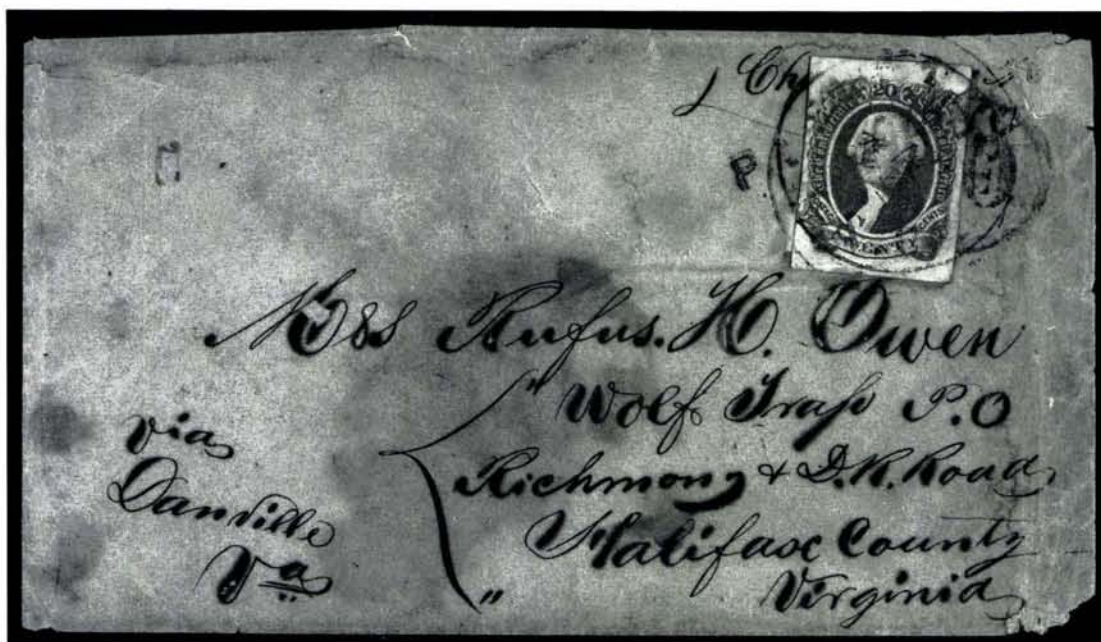 Ch
P
20
TWENTY
Mrs Rufus. H. Owen
" Wolf Trap P.O
Richmond & D. R. Road
Halifax County
" Virginia
via
Danville
Va